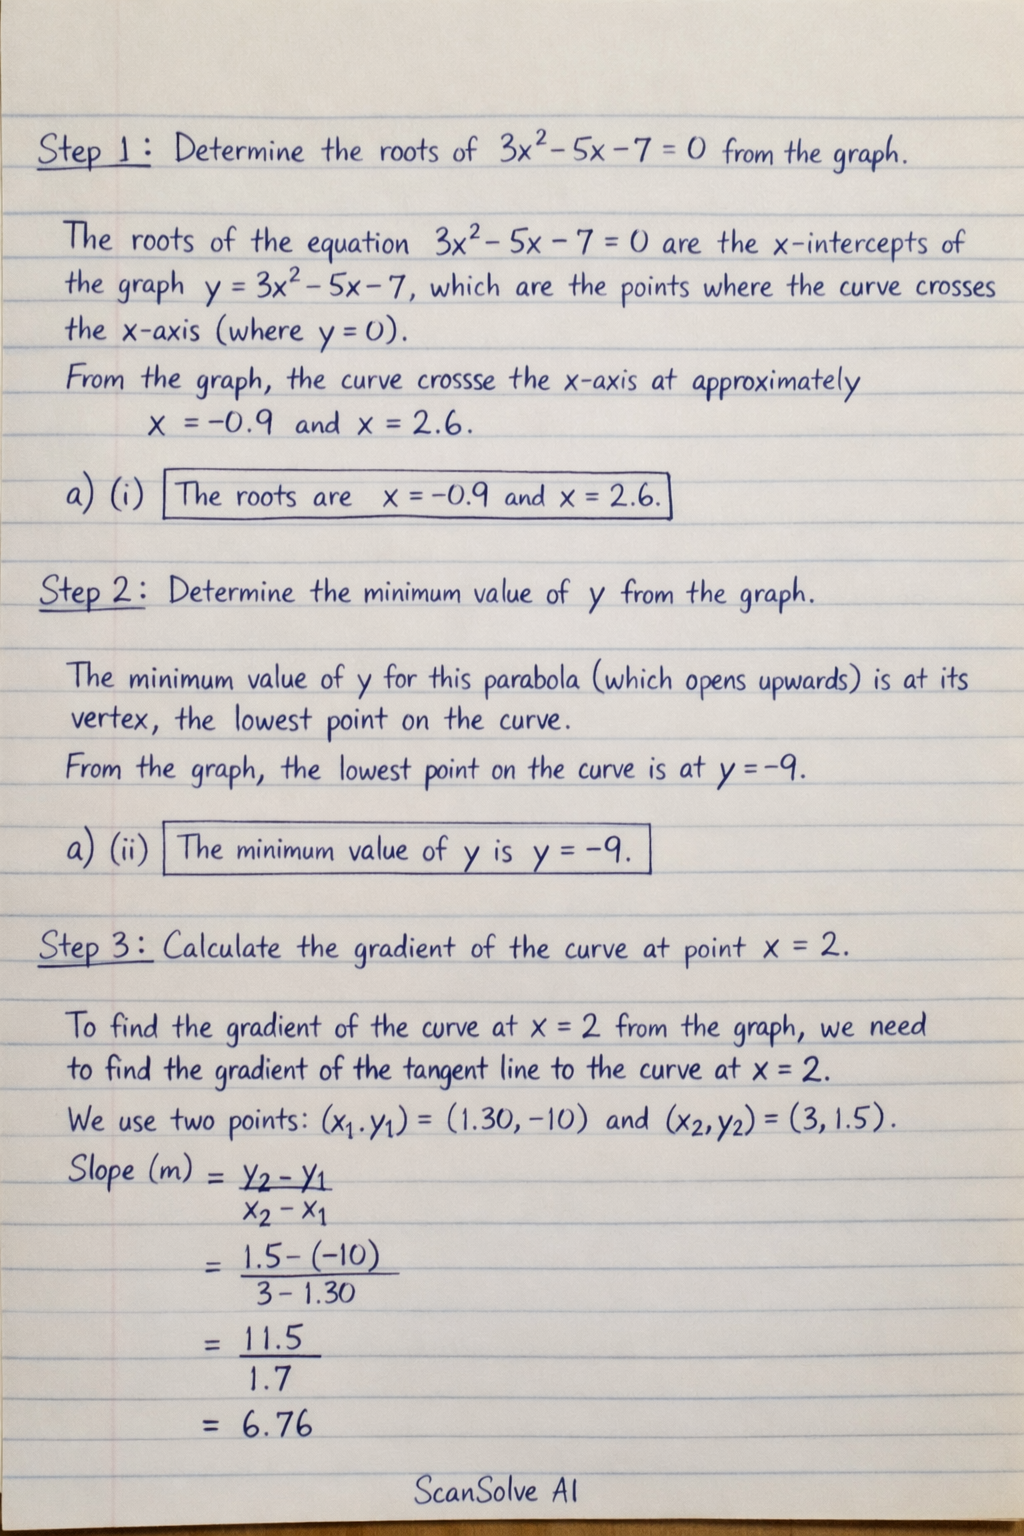 Step 1: Determine the roots of 3x² - 5x - 7 = 0 from the graph.
The roots of the equation 3x² - 5x - 7 = 0 are the x-intercepts of
the graph y = 3x² - 5x - 7, which are the points where the curve crosses
the x-axis (where y = 0).
From the graph, the curve crossse the x-axis at approximately
x = -0.9 and x = 2.6.
a) (i) The roots are x = -0.9 and x = 2.6.
Step 2: Determine the minimum value of y from the graph.
The minimum value of y for this parabola (which opens upwards) is at its
vertex, the lowest point on the curve.
From the graph, the lowest point on the curve is at y = -9.
a) (ii) The minimum value of y is y = -9.
Step 3: Calculate the gradient of the curve at point x = 2.
To find the gradient of the curve at x = 2 from the graph, we need
to find the gradient of the tangent line to the curve at x = 2.
We use two points: (x₁.y₁) = (1.30, -10) and (x₂,y₂) = (3, 1.5).
Slope (m) = y₂ - y₁
x₂ - x₁
= 1.5 - (-10)
3 - 1.30
= 11.5
1.7
= 6.76
ScanSolve AI